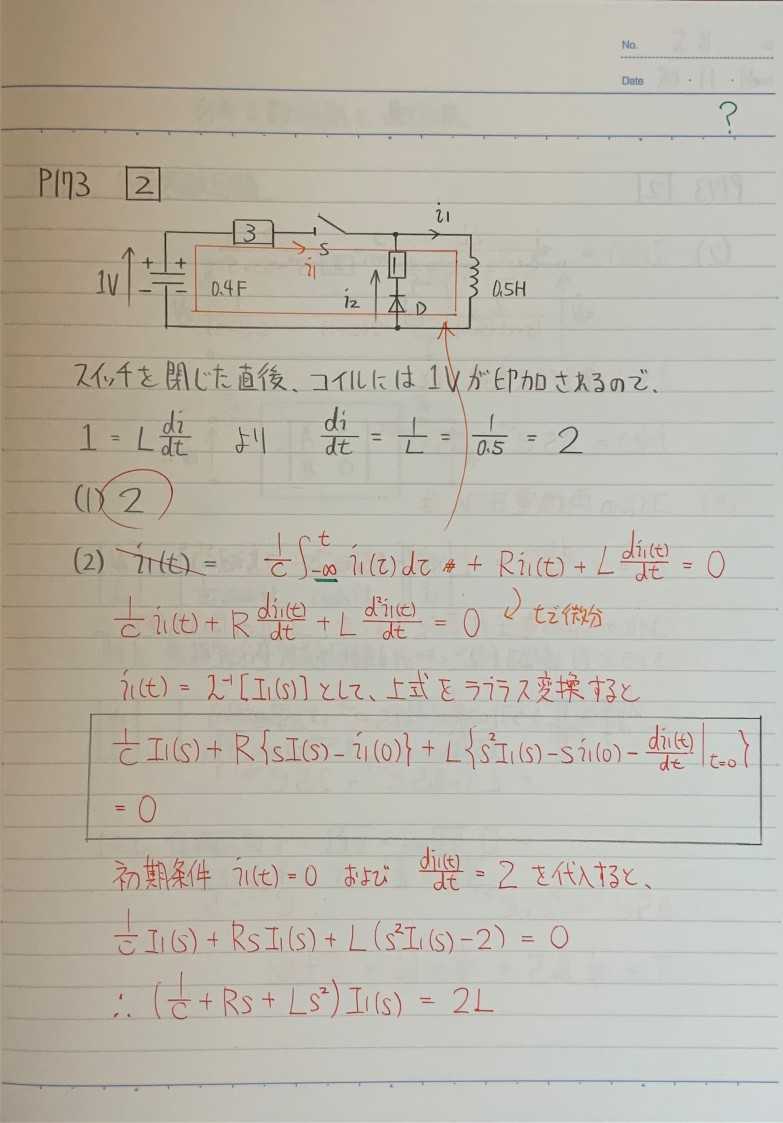 No.
Date
?
P173 2
3
S
i₁
i₁
1V
+ +
- -
0.4F
1
i₂
D
0.5H
スイッチを閉じた直後、コイルには1Vが印加されるので、
1 = L di/dt より di/dt = 1/L = 1/0.5 = 2
(1) 2
(2) i₁(t) = 1/C ∫_{-∞}^{t} i₁(τ)dτ + Ri₁(t) + L di₁(t)/dt = 0
1/C i₁(t) + R di₁(t)/dt + L d²i₁(t)/dt² = 0 tで微分
i₁(t) = L⁻¹[I₁(s)]として、上式をラプラス変換すると
1/C I₁(s) + R{sI(s) - i₁(0)} + L{s²I₁(s) - si₁(0) - di₁(t)/dt|t=0}
= 0
初期条件 i₁(t) = 0 および di₁(t)/dt = 2 を代入すると、
1/C I₁(s) + RsI₁(s) + L(s²I₁(s) - 2) = 0
∴ (1/C + Rs + Ls²)I₁(s) = 2L